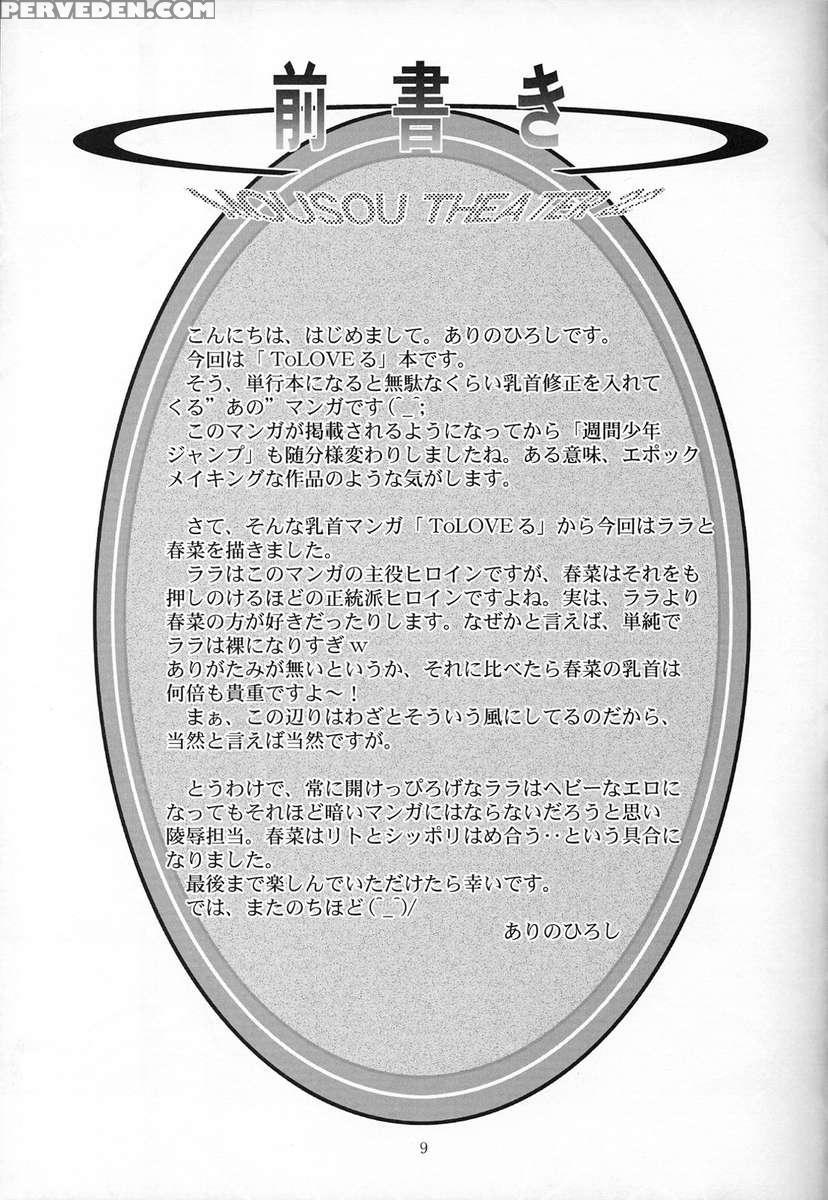 PERVEDEN.COM
前書き
MOUSOU THEATER
こんにちは、はじめまして。ありのひろしです。
今回は「ToLOVEる」本です。
そう、単行本になると無駄なくらい乳首修正を入れて
くる”あの”マンガです(^_^;
このマンガが掲載されるようになってから「週間少年
ジャンプ」も随分様変わりしましたね。ある意味、エポック
メイキングな作品のような気がします。
さて、そんな乳首マンガ「ToLOVEる」から今回はララと
春菜を描きました。
ララはこのマンガの主役ヒロインですが、春菜はそれをも
押しのけるほどの正統派ヒロインですよね。実は、ララより
春菜の方が好きだったりします。なぜかと言えば、単純で
ララは裸になりすぎｗ
ありがたみが無いというか、それに比べたら春菜の乳首は
何倍も貴重ですよ～！
まぁ、この辺りはわざとそういう風にしてるのだから、
当然と言えば当然ですが。
とうわけで、常に開けっぴろげなララはヘビーなエロに
なってもそれほど暗いマンガにはならないだろうと思い
陵辱担当。春菜はリトとシッポリはめ合う‥という具合に
なりました。
最後まで楽しんでいただけたら幸いです。
では、またのちほど(^_^)/
ありのひろし
9